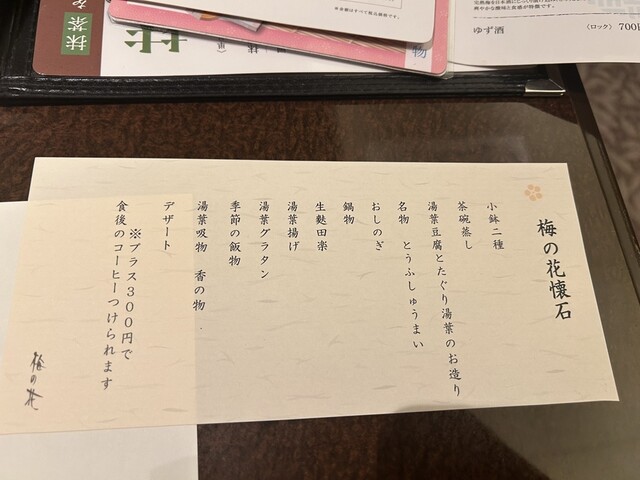 梅の花懐石
小鉢二種
茶碗蒸し
湯葉豆腐とたぐり湯葉のお造り
名物 とうふしゅうまい
おしのぎ
鍋物
生麩田楽
湯葉揚げ
湯葉グラタン
季節の飯物
湯葉吸物 香の物
デザート
※プラス300円で
食後のコーヒーつけられます
梅の花
ゆず酒
(ロック) 700円
抹茶
物